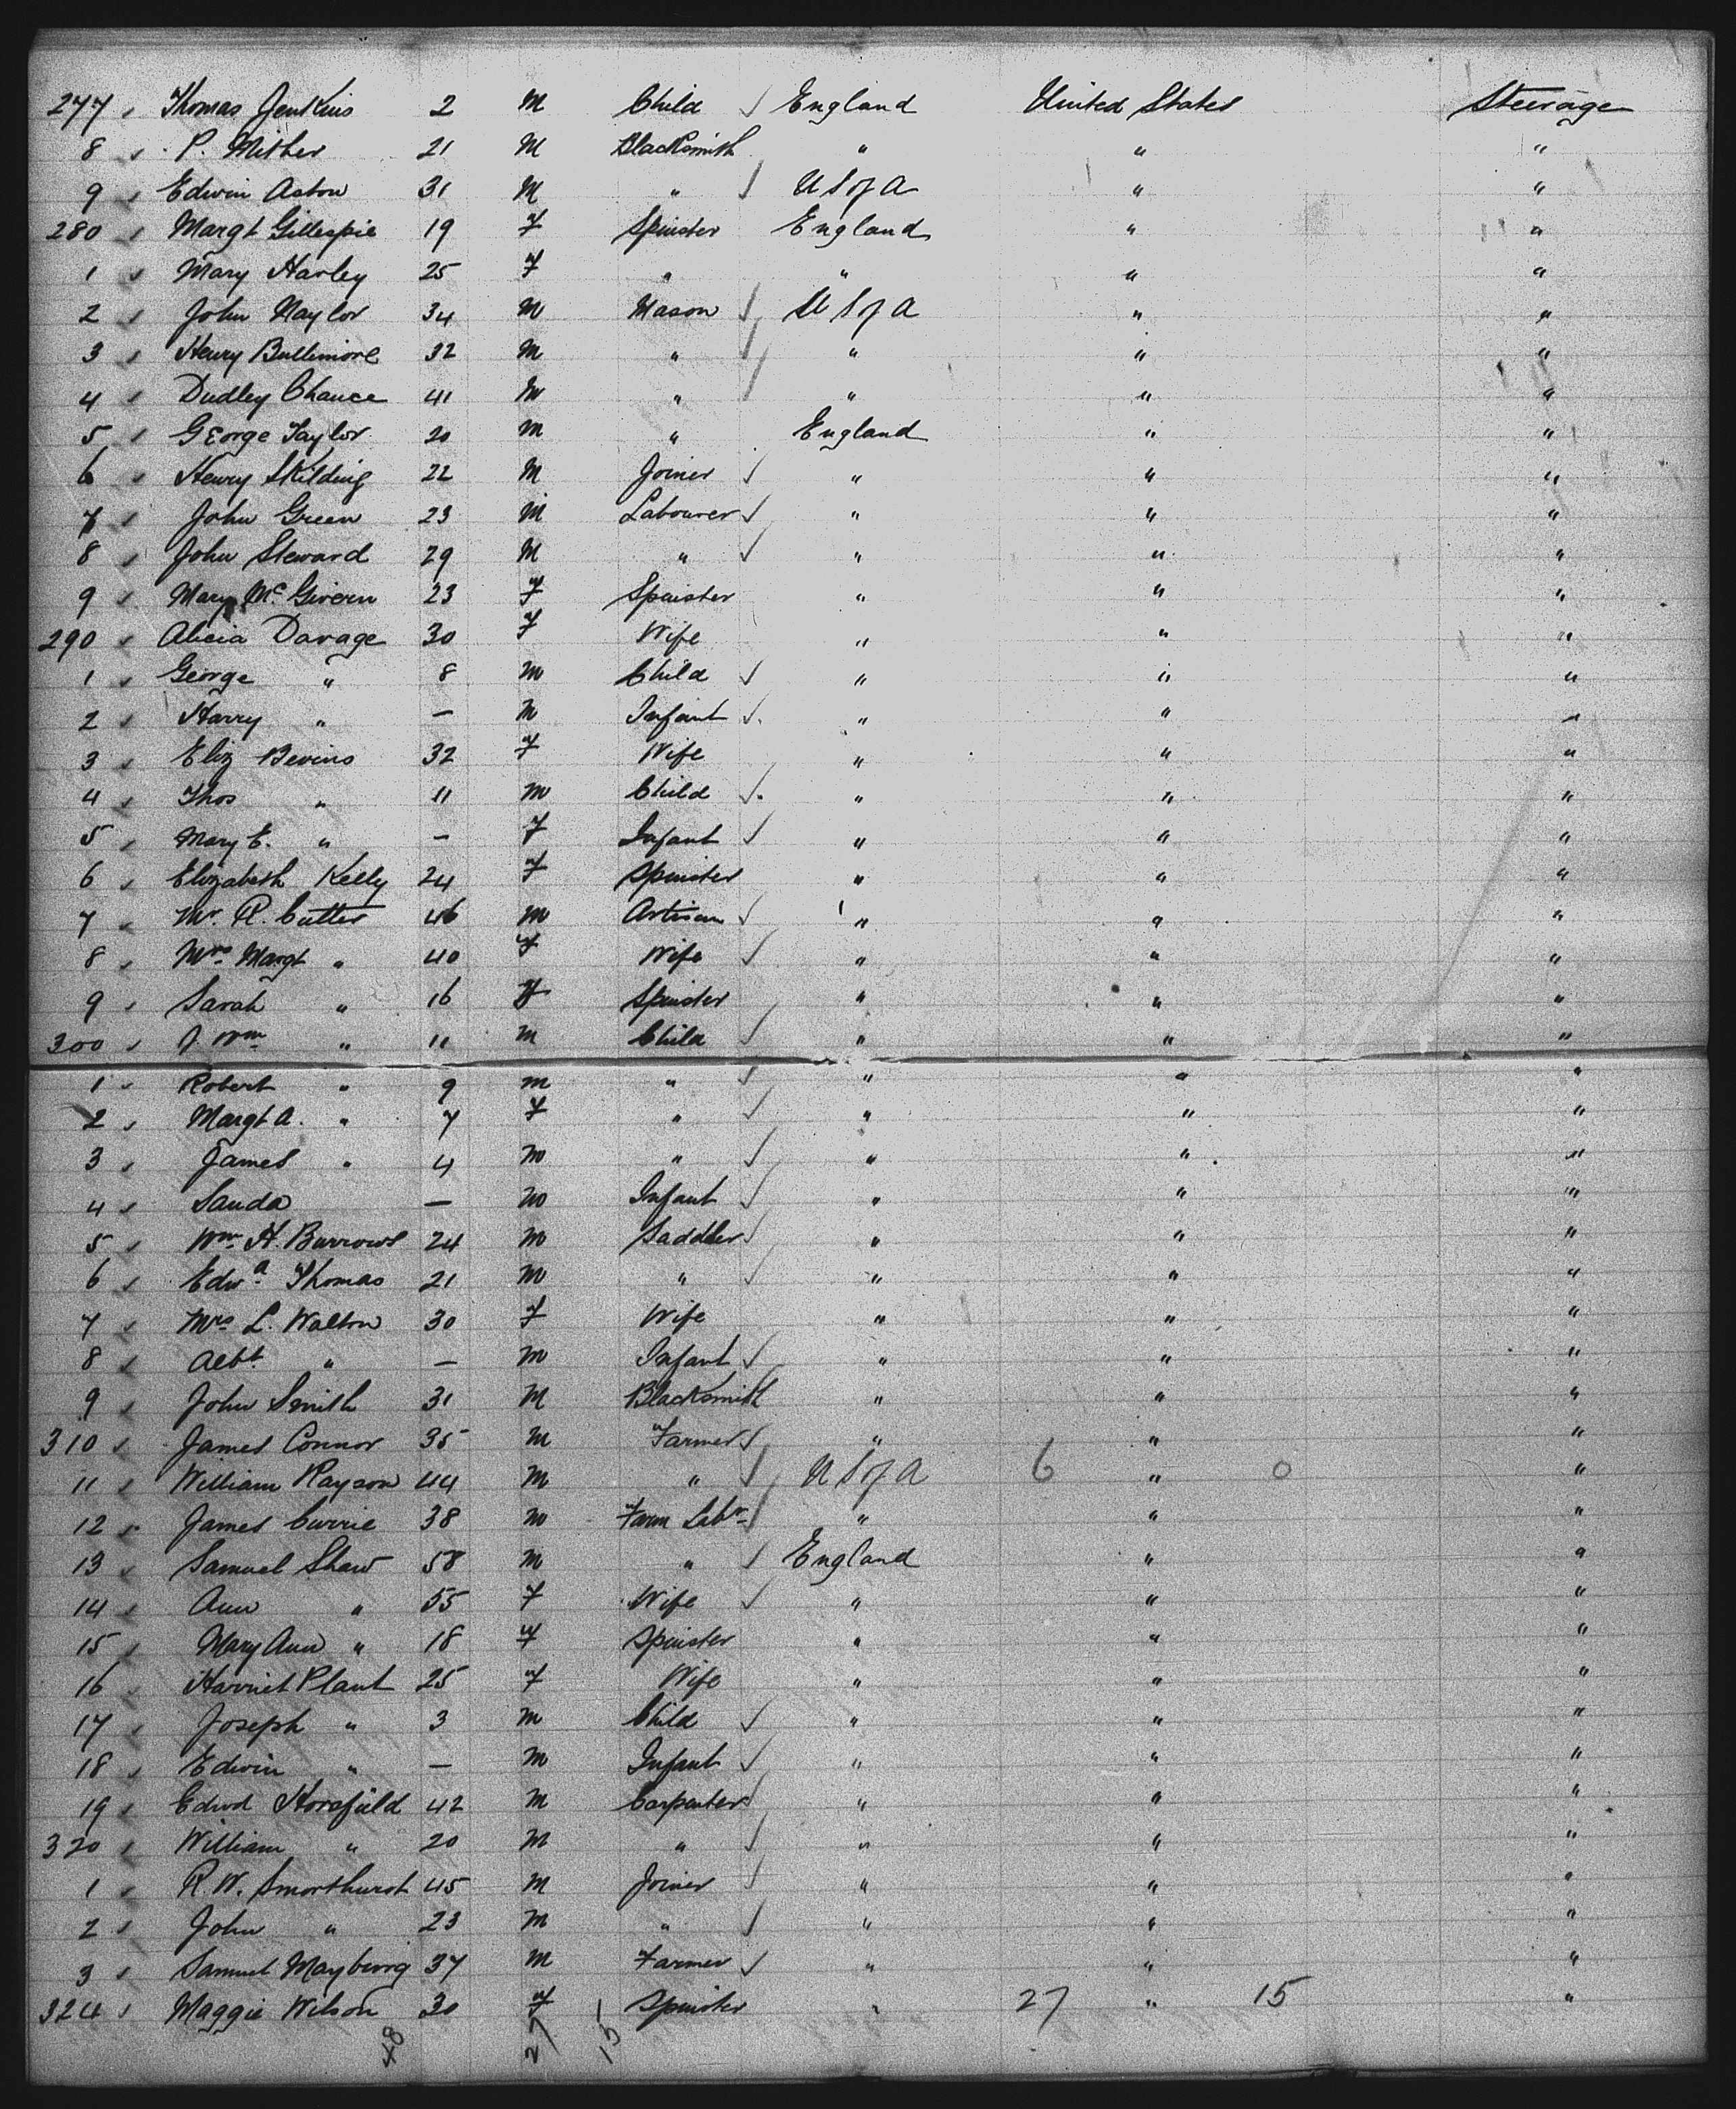 277 Thomas Jenkins 2 M Child England United States Steerage
8 P. Mither 21 M Blacksmith " " "
9 Edwin Aston 31 M " U S of A " "
280 Margt Gillespie 19 F Spinster England " "
1 Mary Harley 25 F " " " "
2 John Naylor 34 M Mason U S of A " "
3 Henry Bullimore 32 M " " " "
4 Dudley Chance 41 M " " " "
5 George Taylor 20 M " England " "
6 Henry Skilding 22 M Joiner " " "
7 John Green 23 M Labourer " " "
8 John Steward 29 M " " " "
9 Mary McGivern 23 F Spinster " " "
290 Alicia Davage 30 F Wife " " "
1 George " 8 M Child " " "
2 Harry " — M Infant " " "
3 Eliz Bevins 32 F Wife " " "
4 Thos " 11 M Child " " "
5 Mary E. " — F Infant " " "
6 Elizabeth Kelly 24 F Spinster " " "
7 Mr. R. Cutter 46 M Artisan " " "
8 Mrs Margt " 40 F Wife " " "
9 Sarah " 16 F Spinster " " "
300 J. Wm " 11 M Child " " "
1 Robert " 9 M " " " "
2 Margt A. " 7 F " " " "
3 James " 4 M " " " "
4 — M Infant " " "
5 Wm H. Burrows 24 M Saddler " " "
6 Edwd Thomas 21 M " " " "
7 Mrs L. Walton 30 F Wife " " "
8 Albt " — M Infant " " "
9 John Smith 31 M Blacksmith " " "
310 James Connor 35 M Farmer " " "
11 William Rayson 44 M " U S of A 6 " 0 "
12 James Currie 38 M Farm Labr " " "
13 Samuel Shaw 58 M " England " "
14 Ann " 55 F Wife " " "
15 Mary Ann " 18 F Spinster " " "
16 Harriet Plant 25 F Wife " " "
17 Joseph " 3 M Child " " "
18 Edwin " — M Infant " " "
19 Edwd Horsfield 42 M Carpenter " " "
320 William " 20 M " " " "
1 R. W. Smorthurst 45 M Joiner " " "
2 John " 23 M " " " "
3 Samuel Mayburg 37 M Farmer " " "
324 Maggie Wilson 30 F Spinster " 27 " 15 "
48 27 15